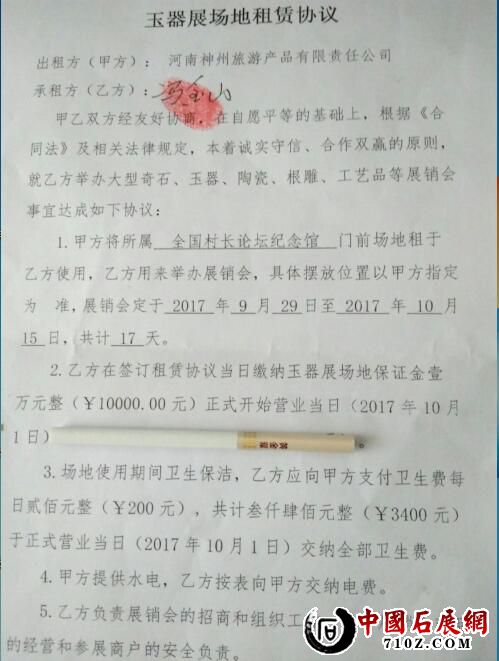 玉器展场地租赁协议
出租方（甲方）： 河南神州旅游产品有限责任公司
承租方（乙方）：
甲乙双方经友好协商，在自愿平等的基础上，根据《合
同法》及相关法律规定，本着诚实守信、合作双赢的原则，
就乙方举办大型奇石、玉器、陶瓷、根雕、工艺品等展销会
事宜达成如下协议：
1.甲方将所属 全国村长论坛纪念馆 门前场地租于
乙方使用，乙方用来举办展销会，具体摆放位置以甲方指定
为 准，展销会定于 2017 年 9 月 29 日至 2017 年 10 月
15 日，共计 17 天。
2.乙方在签订租赁协议当日缴纳玉器展场地保证金壹
万元整（￥10000.00 元）正式开始营业当日（2017 年 10 月
1 日）
3.场地使用期间卫生保洁，乙方应向甲方支付卫生费每
日贰佰元整（￥200 元），共计叁仟肆佰元整（￥3400 元）
于正式营业当日（2017 年 10 月 1 日）交纳全部卫生费。
4.甲方提供水电，乙方按表向甲方交纳电费。
5.乙方负责展销会的招商和组织工
的经营和参展商户的安全负责。
中國石展網
710Z.COM